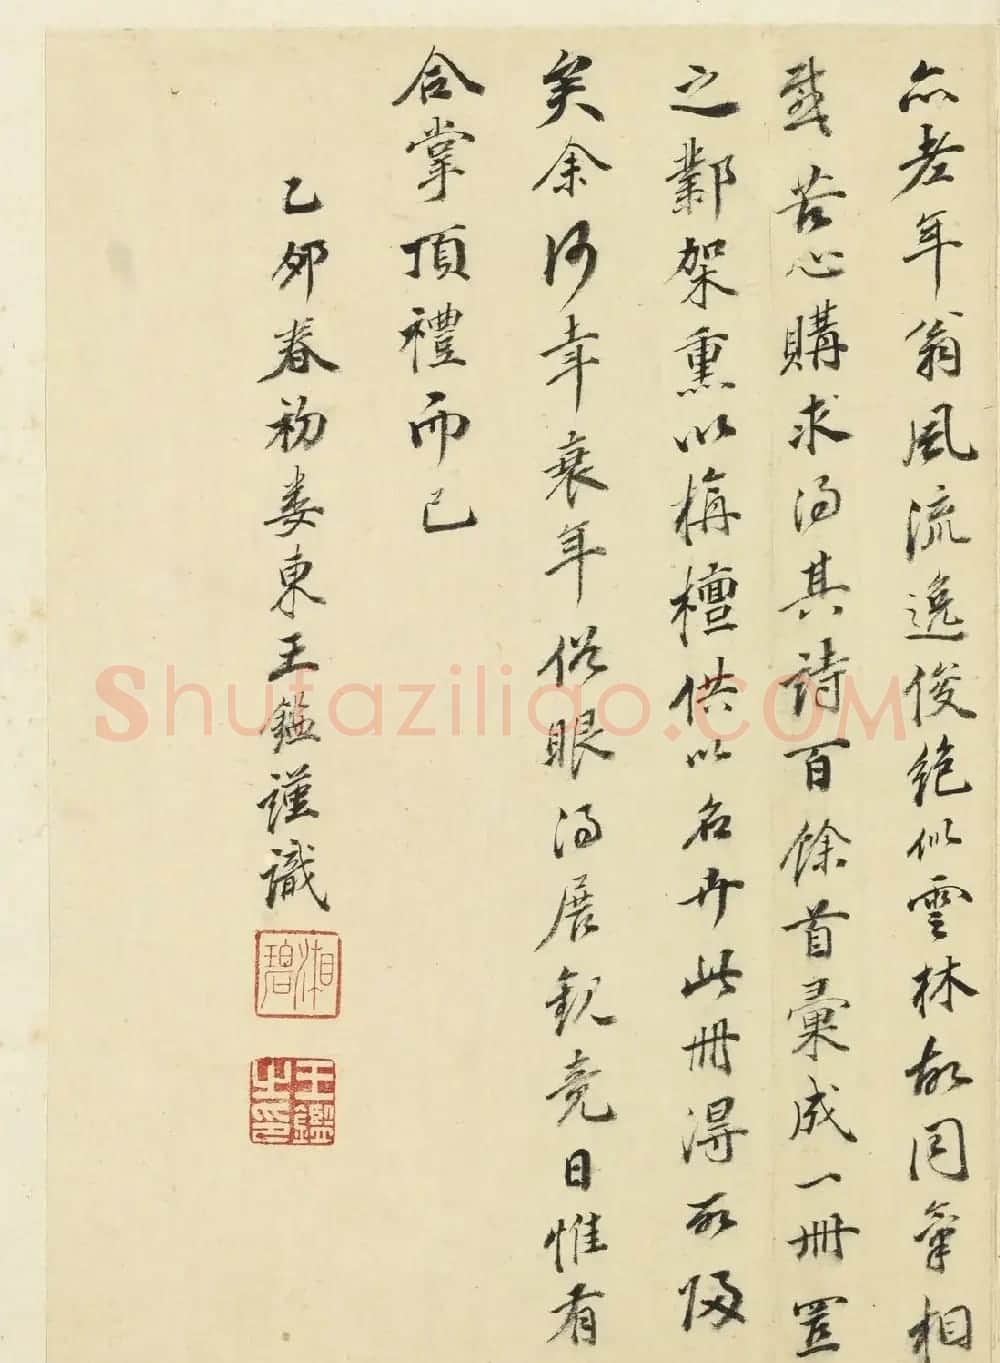 亦老年翁風流逸俊絶似雲林故同氣相
感苦心購求得其詩百餘首彙成一冊置
之鄴架熏以栴檀供以名卉此冊得所歸
矣余何幸衰年俗眼得展觀竟日惟有
合掌頂禮而已
乙卯春初婁東王鑑謹識
湘碧
王鑑之印
Shufaziliao.COM